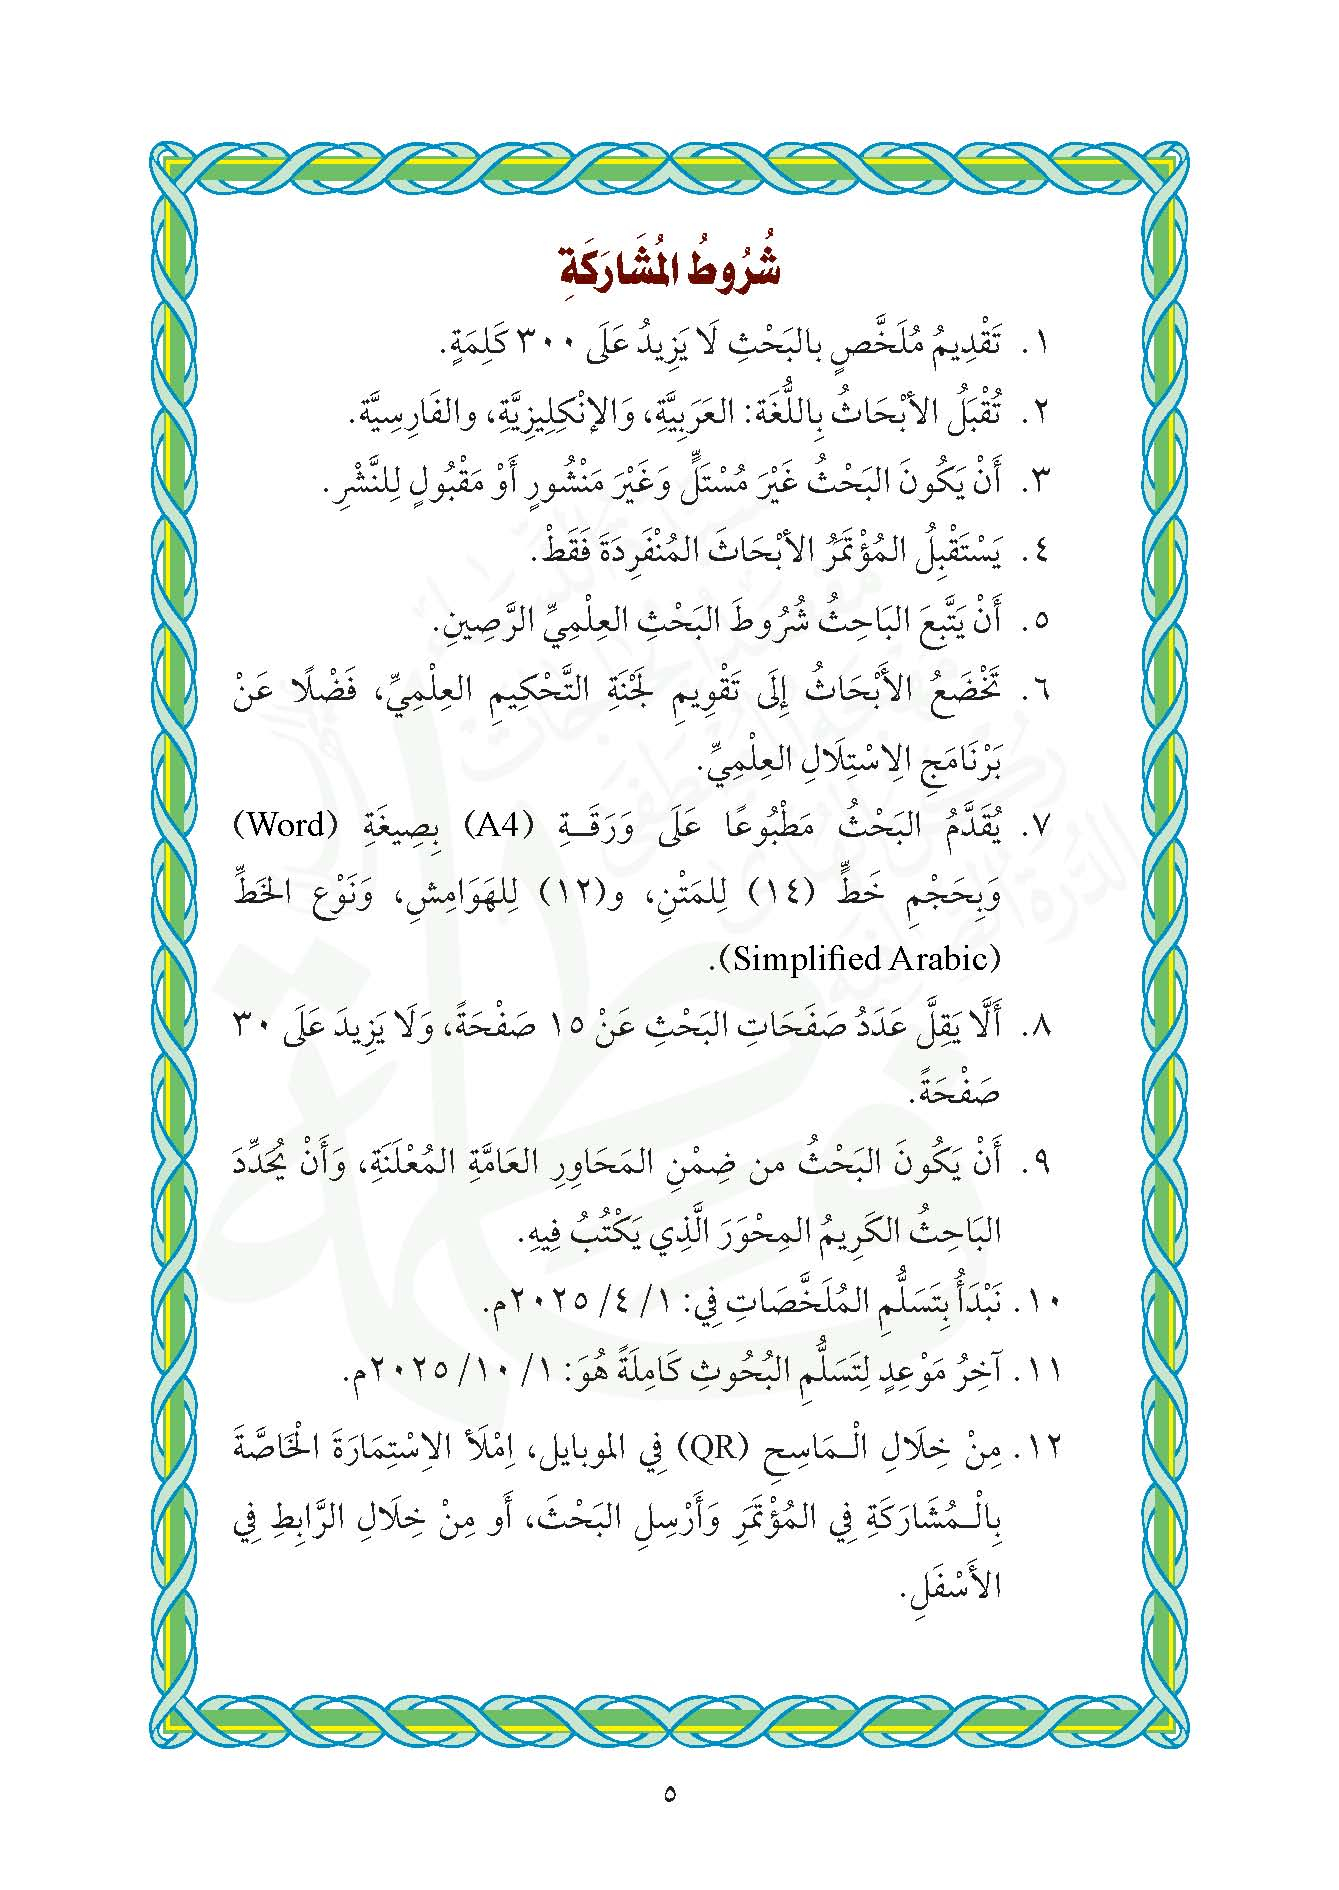 شُرُوطُ المُشَارَكَةِ
١. تَقْدِيمُ مُلَخَّصٍ بالبَحْثِ لَا يَزِيدُ عَلَى ٣٠٠ كَلِمَةٍ.
٢. تُقْبَلُ الأبْحَاثُ بِاللُّغَة: العَرَبِيَّةِ، وَالإنْكِلِيزِيَّةِ، والفَارِسِيَّة.
٣. أَنْ يَكُونَ البَحْثُ غَيْرَ مُسْتَلٍّ وَغَيْرَ مَنْشُورٍ أَوْ مَقْبُولٍ لِلنَّشْرِ.
٤. يَسْتَقْبِلُ المُؤْتَمَرُ الأبْحَاثَ المُنْفَرِدَةَ فَقَطْ.
٥. أَنْ يَتَّبِعَ البَاحِثُ شُرُوطَ البَحْثِ العِلْمِيِّ الرَّصِينِ.
٦. تَخْضَعُ الأَبْحَاثُ إِلَى تَقْوِيمِ لَجْنَةِ التَّحْكِيمِ العِلْمِيِّ، فَضْلًا عَنْ
بَرْنَامَجِ الِاسْتِلَالِ العِلْمِيِّ.
٧. يُقَدَّمُ البَحْثُ مَطْبُوعًا عَلَى وَرَقَـــةِ (A4) بِصِيغَةِ (Word)
وَبِحَجْمِ خَطٍّ (١٤) لِلمَتْنِ، و(١٢) لِلهَوَامِشِ، وَنَوْع الخَطِّ
(Simplified Arabic).
٨. أَلَّا يَقِلَّ عَدَدُ صَفَحَاتِ البَحْثِ عَنْ ١٥ صَفْحَةً، وَلَا يَزِيدَ عَلَى ٣٠
صَفْحَةً.
٩. أَنْ يَكُونَ البَحْثُ من ضِمْنِ المَحَاوِرِ العَامَّةِ المُعْلَنَةِ، وَأَنْ يُحَدِّدَ
البَاحِثُ الكَرِيمُ المِحْوَرَ الَّذِي يَكْتُبُ فِيهِ.
١٠. نَبْدَأُ بِتَسَلُّمِ المُلَخَّصَاتِ فِي: ١/ ٤/ ٢٠٢٥م.
١١. آخِرُ مَوْعِدٍ لِتَسَلُّمِ البُحُوثِ كَامِلَةً هُوَ: ١/ ١٠/ ٢٠٢٥م.
١٢. مِنْ خِلَالِ الْــمَاسِحِ (QR) فِي الموبايل، اِمْلَأ الاِسْتِمَارَةَ الْخَاصَّةَ
بِالْــمُشَارَكَةِ فِي المُؤْتَمَرِ وَأَرْسِلِ البَحْثَ، أَو مِنْ خِلَالِ الرَّابِطِ فِي
الأَسْفَلِ.
٥